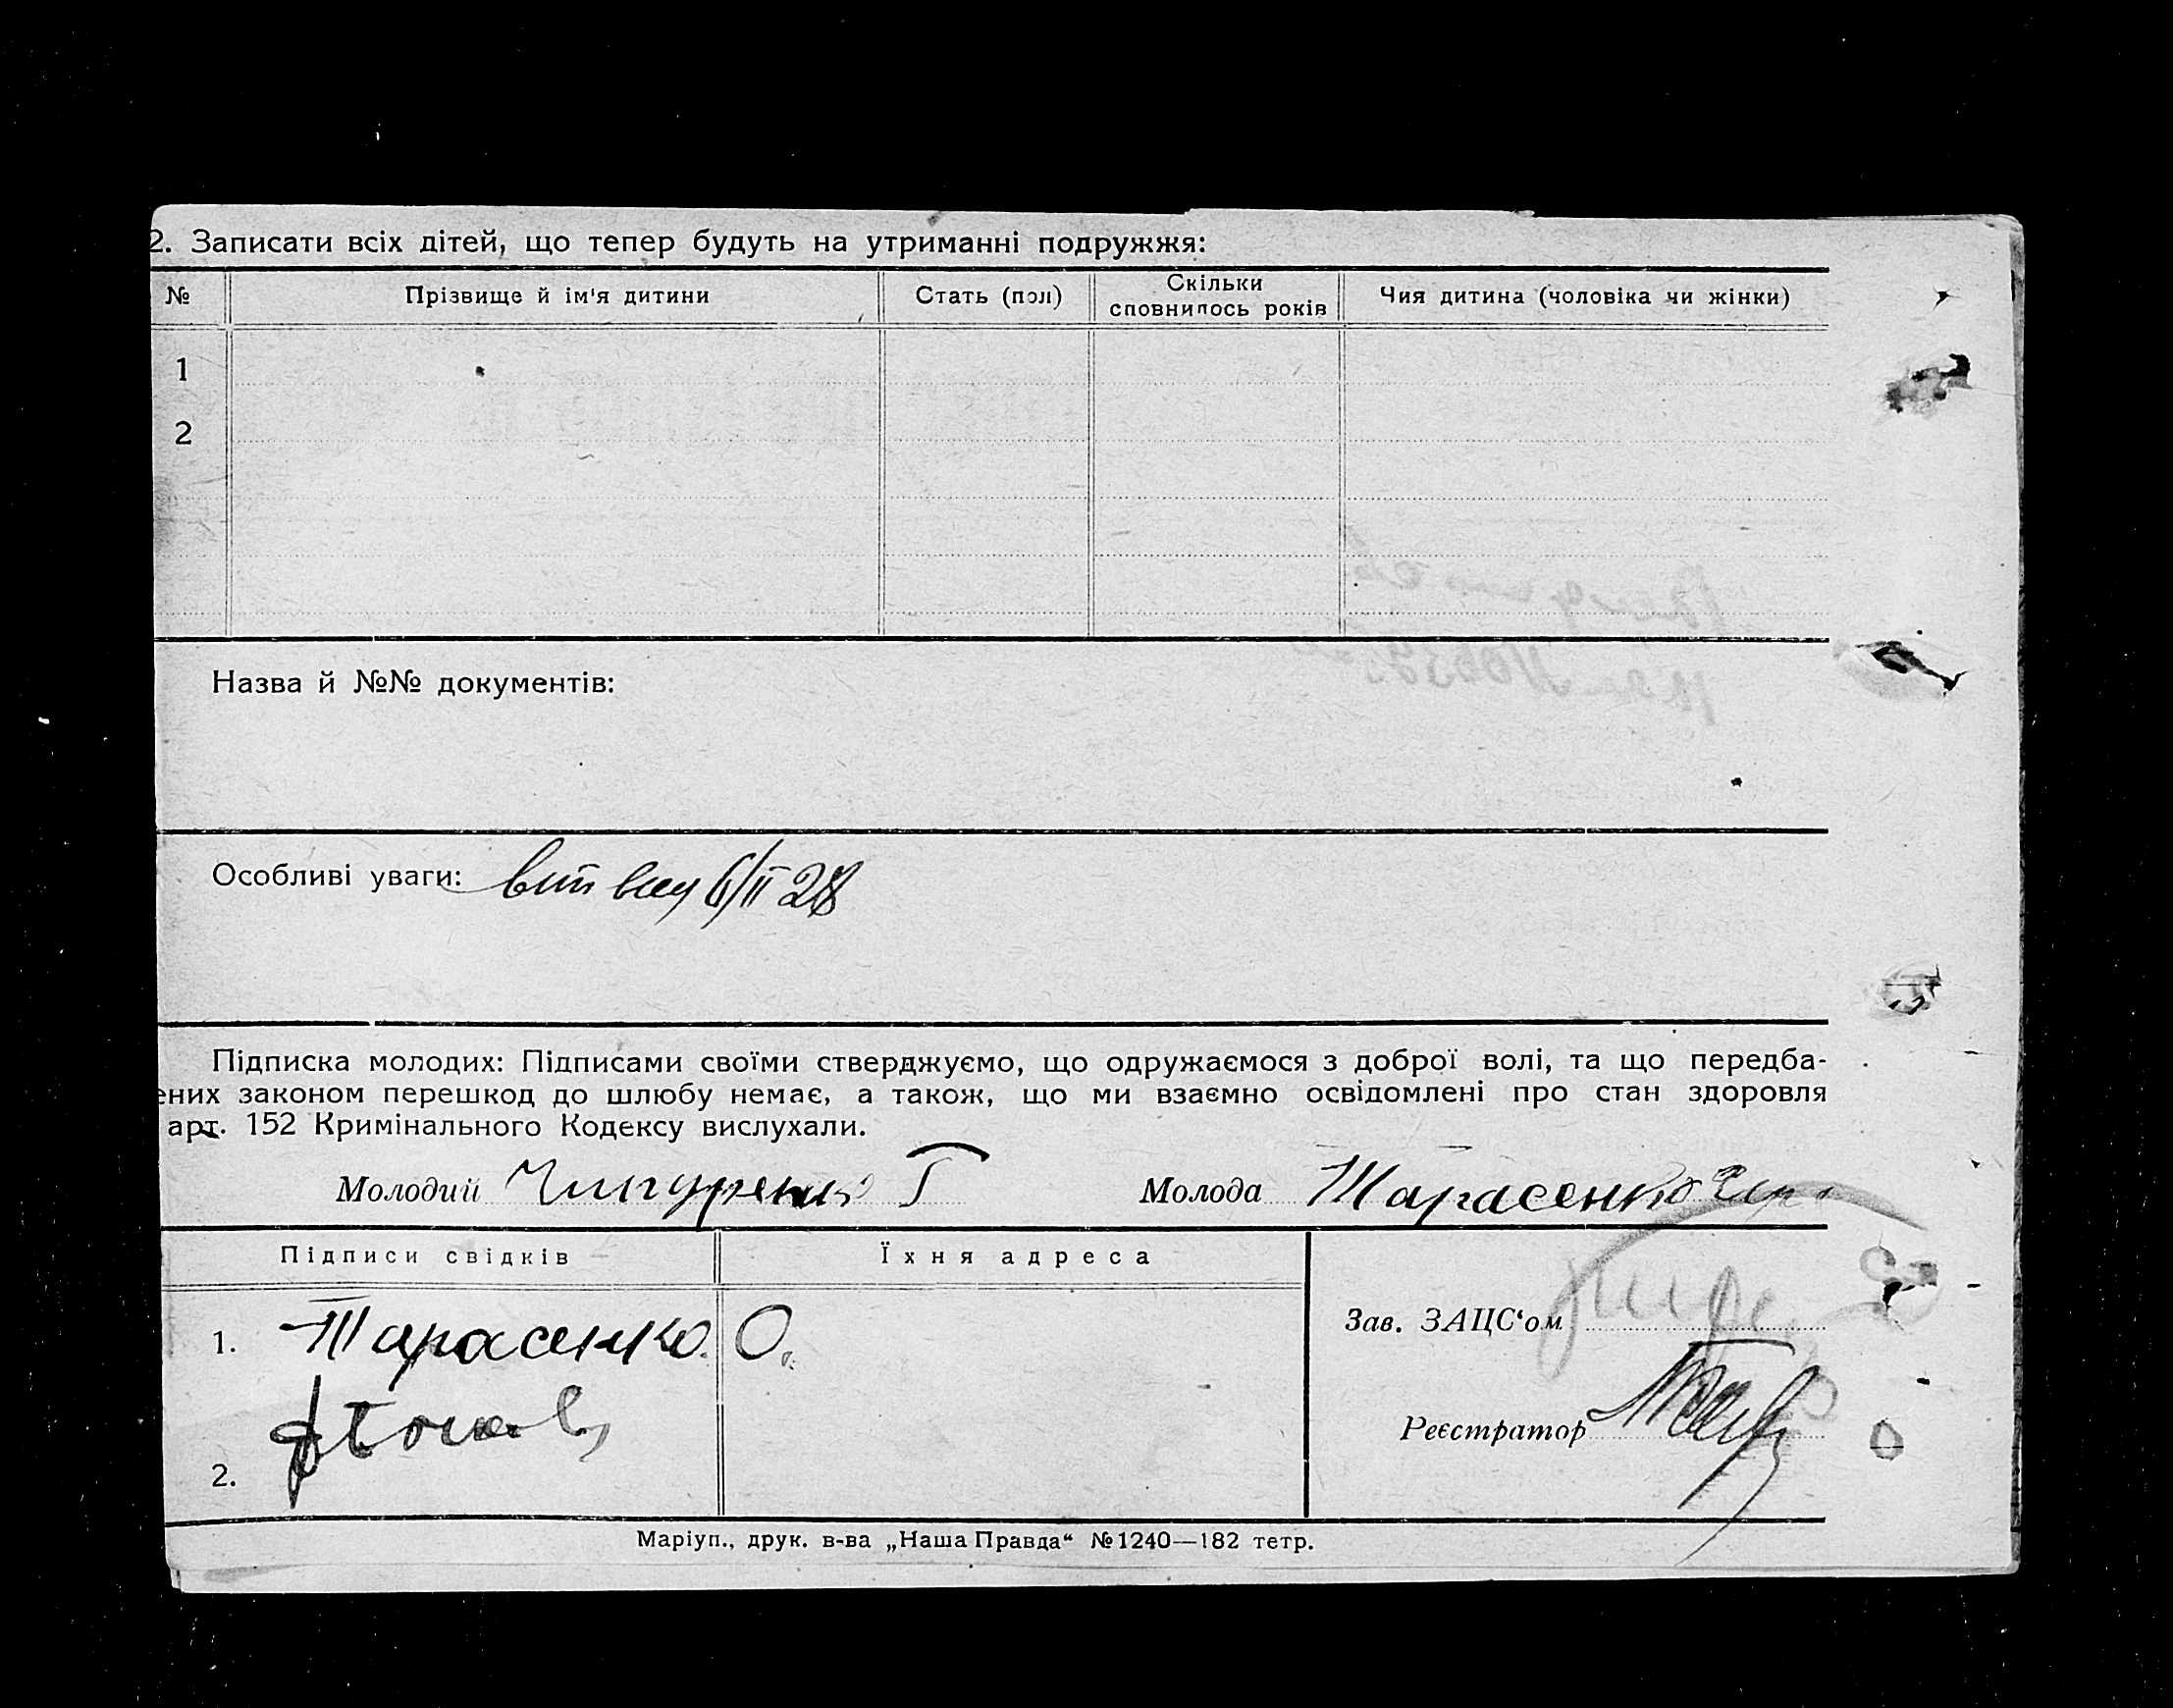 2. Записати всіх дітей, що тепер будуть на утриманні подружжя:
№ Прізвище й ім'я дитини Стать (пол) Скільки сповнилось років Чия дитина (чоловіка чи жінки)
1
2
Назва й №№ документів:
Особливі уваги: 6/II 28
Підписка молодих: Підписами своїми стверджуємо, що одружаємося з доброї волі, та що передба-
ених законом перешкод до шлюбу немає, а також, що ми взаємно освідомлені про стан здоровля
арт. 152 Кримінального Кодексу вислухали.
Молодий Молода Тарасенко
Підписи свідків Їхня адреса
Зав. ЗАЦС‘ом
1. Тарасенко. О.
Реєстратор
2.
Маріуп., друк. в-ва „Наша Правда“ №1240—182 тетр.